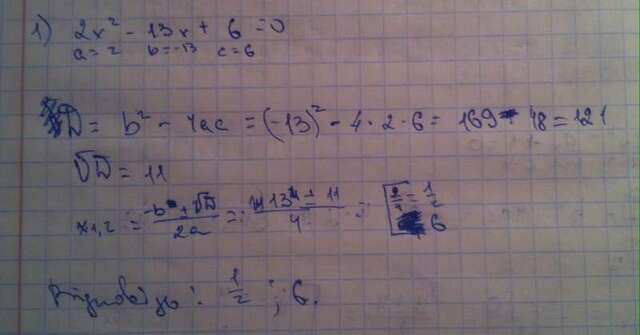 1) 2x² - 13x + 6 = 0
a = 2 b = -13 c = 6
D = b² - 4ac = (-13)² - 4 · 2 · 6 = 169 - 48 = 121
√D = 11
x₁,₂ = (-b ± √D)/2a = (13 ± 11)/4 = [2/4 = 1/2
6
Відповідь: 1/2 ; 6.